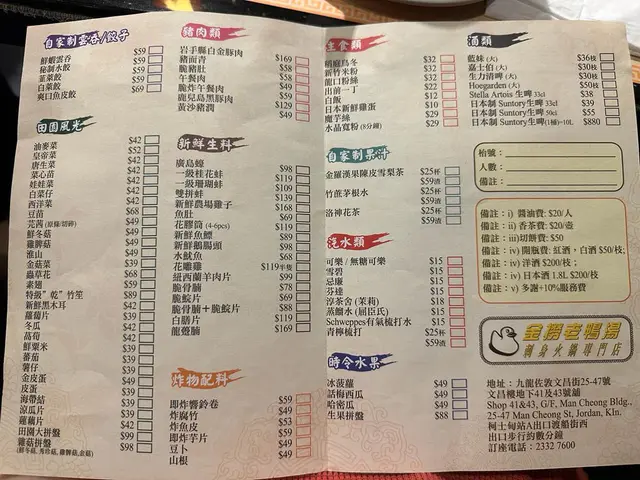 自家制雲吞/餃子
鮮蝦雲吞 $59
秘制水餃 $59
韮菜餃 $59
白菜餃 $59
爽口魚皮餃 $69
田園風光
油麥菜 $42
皇帝菜 $52
唐生菜 $42
菜心苗 $42
娃娃菜 $42
白菜仔 $42
西洋菜 $42
豆苗 $68
芫茜(原條/切碎) $49
鮮冬菇 $49
雞髀菇 $49
淮山 $49
金菇菜 $39
蟲草花 $68
素翅 $59
特級"乾"竹笙 $89
新鮮黑木耳
蘿蔔片
冬瓜
萵荀
鮮粟米
蕃茄
薯仔
金皮蛋
皮蛋
海帶結
涼瓜片
蓮藕片
田園大拼盤 $99
雜菇拼盤 $98
(鮮冬菇, 秀珍菇, 雞髀菇, 金菇)
豬肉類
岩手縣白金豚肉 $169
豬面青 $58
脆豬肚 $58
午餐肉 $48
脆炸午餐肉 $49
鹿兒島黑豚肉 $129
黃沙豬潤 $49
新鮮生料
廣島蠔 $98
一級桂花蚌 $119
一級珊瑚蚌 $109
雙拼蚌 $139
新鮮農場雞子 $168
魚肚 $69
花膠筒 (4-6pcs) $119
新鮮魚鰾 $89
新鮮鵝腸頭 $89
水魷魚 $68
花雕雞 $119半隻
紐西蘭羊肉片 $99
脆骨腩 $78
脆鯇片 $69
脆骨腩+脆鯇片 $88
白膳片 $119
龍躉腩 $169
炸物配料
即炸響鈴卷 $59
炸腐竹 $49
炸魚皮 $53
即炸芋片 $59
豆卜 $49
山根 $49
主食類
稻庭烏冬 $32
新竹米粉 $32
龍口粉絲 $32
出前一丁 $22
白飯 $12
日本新鮮雞蛋 $10
魔芋絲 $29
水晶寬粉 (8分鐘) $29
自家制果汁
金羅漢果陳皮雪梨茶 $25杯
$59渣
竹蔗茅根水 $25杯
$59渣
洛神花茶 $25杯
$59渣
汽水類
可樂/無糖可樂 $15
雪碧 $15
忌廉 $15
芬達 $15
淳茶舍 (茉莉) $18
蒸餾水 (屈臣氏) $15
Schweppes有氣梳打水 $15
青檸梳打 $25杯
$59渣
時令水果
冰菠蘿 $49
話梅西瓜 $49
哈密瓜 $49
生果拼盤 $88
酒類
藍妹 (大) $36枝
嘉士伯 (大) $30枝
生力清啤 (大) $30枝
Hoegarden (大) $50枝
Stella Artois 生啤 33cl $38
日本制 Suntory生啤 33cl $39
日本制 Suntory生啤 50cl $55
日本制 Suntory生啤(1桶)=10L $880
枱號:
人數:
備註:
備註:i) 醬油費: $20/人
備註:ii) 香茶費: $20/壺
備註:iii)切餅費: $50
備註:iv) 開瓶費: 紅酒,白酒 $50/枝;
備註:iv) 洋酒 $200/枝;
備註:iv) 日本酒 1.8L $200/枝
備註:v) 多謝+10%服務費
金爵老鴨湯
刺身火鍋專門店
地址:九龍佐敦文昌街25-47號
文昌樓地下41及43號舖
Shop 41&43, G/F, Man Cheong Bldg.,
25-47 Man Cheong St, Jordan, Kln.
柯士甸站A出口渡船街西
出口步行約數分鐘
訂座電話:2332 7600